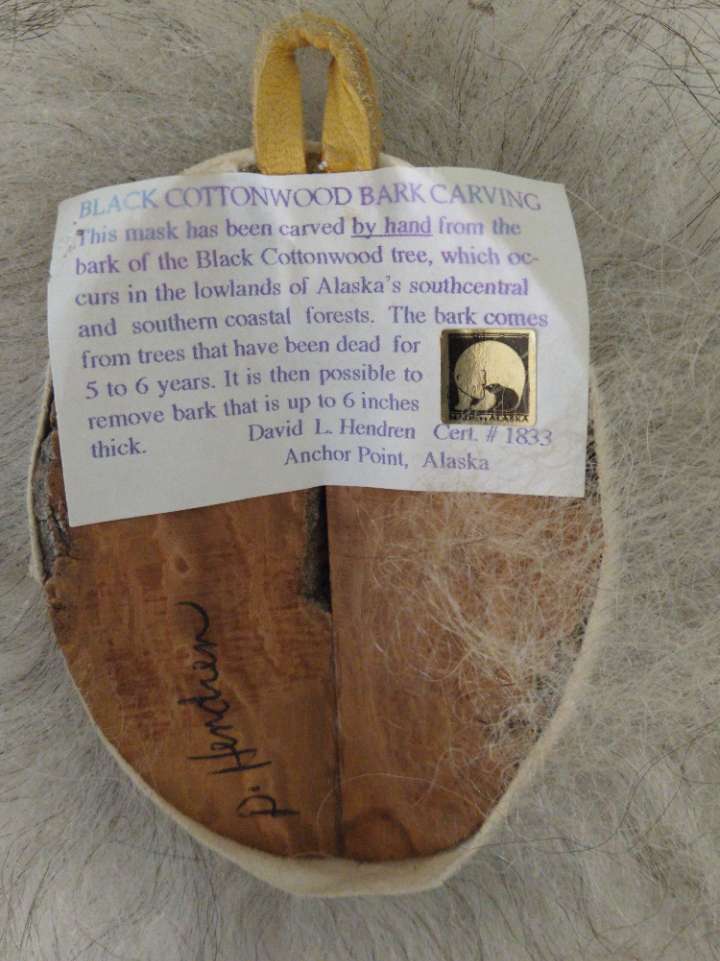 BLACK COTTONWOOD BARK CARVING
This mask has been carved by hand from the
bark of the Black Cottonwood tree, which oc-
curs in the lowlands of Alaska's southcentral
and southern coastal forests. The bark comes
from trees that have been dead for
5 to 6 years. It is then possible to
remove bark that is up to 6 inches
thick.
David L. Hendren Cert. # 1833
Anchor Point, Alaska
ALASKA
D. Hendren